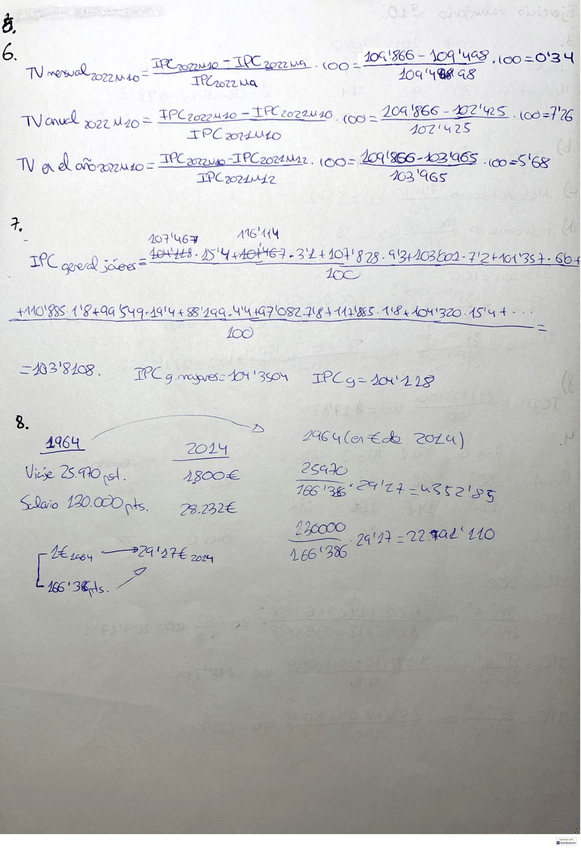 5.
6.
TV mensual 2022M10 = IPC2022M10 - IPC2022M9 / IPC2022M9 · 100 = 109'866 - 109'498 / 109'498 · 100 = 0'34
TV anual 2022M10 = IPC2022M10 - IPC2021M10 / IPC2021M10 · 100 = 109'866 - 102'425 / 102'425 · 100 = 7'26
TV en el año 2022M10 = IPC2022M10 - IPC2021M12 / IPC2021M12 · 100 = 109'866 - 103'965 / 103'965 · 100 = 5'68
7.
107'467 116'114
IPC general jóvenes = · 15'4 + · 3'1 + 107'828 · 9'3 + 103'601 · 7'2 + 101'357 · 6'6 +
100
+ 110'885 · 1'8 + 99'549 · 19'4 + 88'199 · 4'4 + 97'082 · 7'8 + 117'885 · 1'8 + 104'320 · 15'4 + ... =
100
= 103'8108. IPC g. mayores = 104'3504 IPC g = 104'128
8.
1964 2014 1964 (en € de 2014)
Viaje 25.970 pst. 1800 € 25970 / 166'386 · 29'17 = 4552'85
Salario 130.000 pts. 28.232 € 130000 / 166'386 · 29'17 = 22.791'110
1€ 1964 → 29'17 € 2014
166'386 pts.